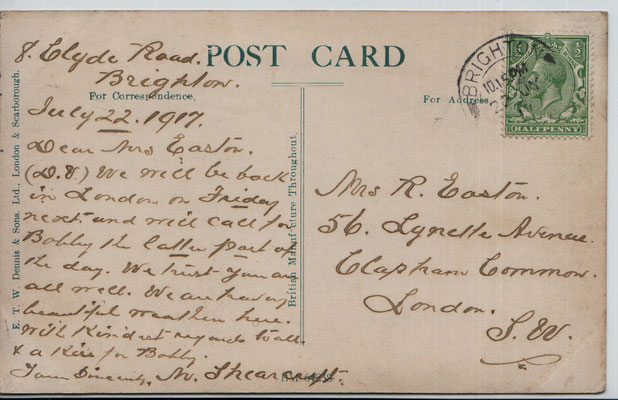 8. Clyde Road.
Brighton.
POST CARD
For Correspondence.
For Address
July 22. 1917.
Dear Mrs Easton.
(D.V.) We will be back
in London on Friday
next. and will call for
Bobby the latter part of
the day. We trust you are
all well. We are having
beautiful weather here.
With kindest regards to all.
& a kiss for Bobby.
Yours Sincerely, M. Shearcroft.
E. T. W. Dennis & Sons. Ltd., London & Scarborough.
British Manufacture Throughout
BRIGHTON
10.15 PM
HALFPENNY
Mrs R. Easton.
56. Lynette Avenue.
Clapham Common.
London.
S.W.